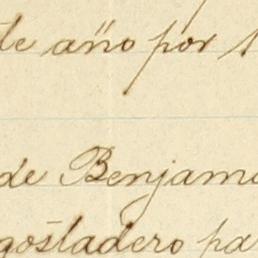 te año por
de Benjam
gostadero pa